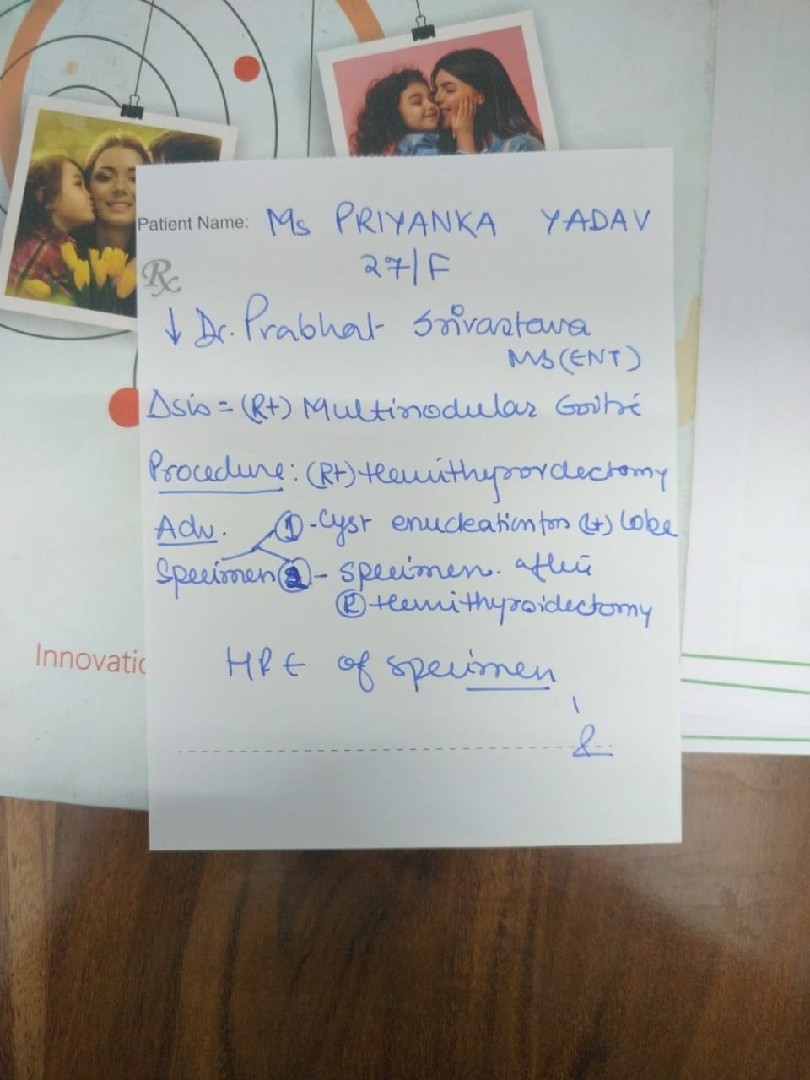 Patient Name: Ms PRIYANKA YADAV
27/F
Rx
↓ Dr. Prabhat Srivastava
MS (ENT)
Δsis = (Rt) Multinodular Goitre
Procedure: (Rt) Hemithyroidectomy
Adv. ① - Cyst enucleation from (Lt) lobe
Specimen ② - specimen after
Ⓡ Hemithyroidectomy
Innovatic
HPE of specimen